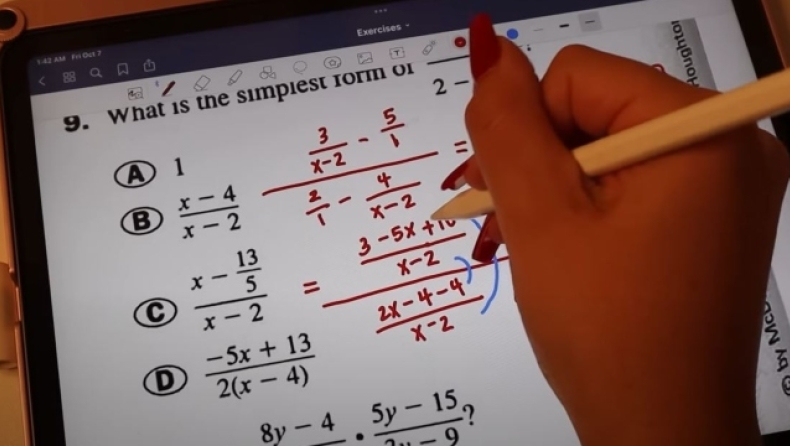 1:42 AM Fri Oct 7
Exercises
9. What is the simplest form of
2 -
A 1
B x - 4 / x - 2
C x - 13/5 / x - 2
D -5x + 13 / 2(x - 4)
3/x-2 - 5/1
=
2/1 - 4/x-2
= 3-5x+10 / x-2
2x-4-4 / x-2
8y - 4
· 5y - 15 ?
- 9
Houghton
by McD